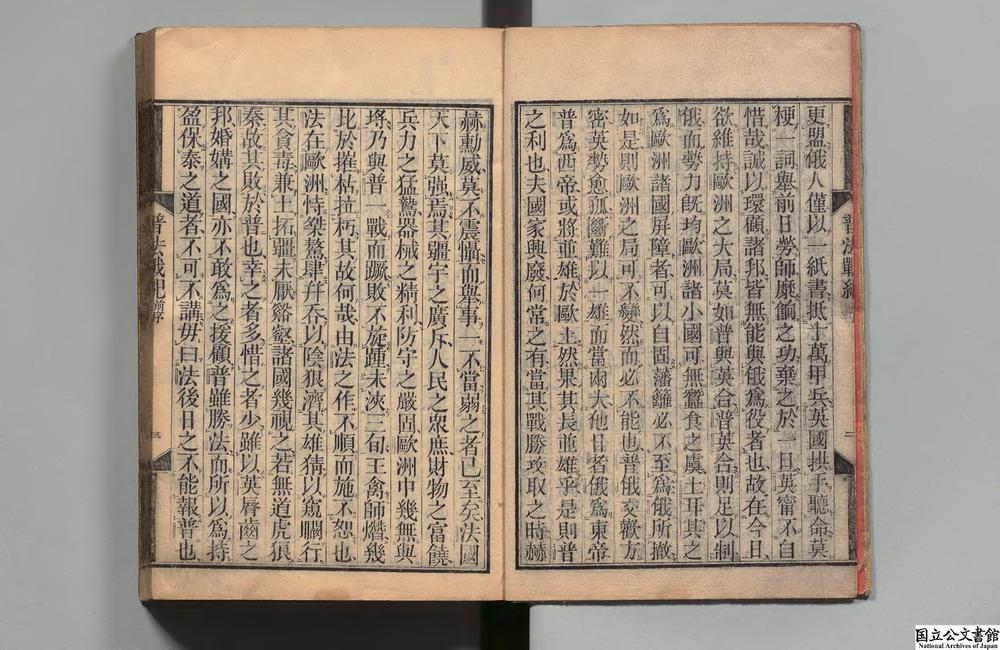 更盟俄人僅以一紙書抵十萬甲兵英國拱手聽命莫
梗一詞舉前日勞師糜餉之功棄之於一旦英甯不自
惜哉誠以環顧諸邦皆無能與俄爲役者也故在今日
欲維持歐洲之大局莫如普與英合普英合則足以制
俄而勢力旣均歐洲諸小國可無蠶食之虞土耳其之
爲歐洲諸國屏障者可以自固藩籬必不至爲俄所撤
如是則歐洲之局可不變然而必不能也普俄交歡方
密英勢愈孤斷難以一雄而當兩大他日者俄爲東帝
普爲西帝或將並雄於歐土然果其長並雄乎是則普
之利也夫國家興廢何常之有當其戰勝攻取之時赫
普法戰紀
二
赫勳威莫不震懾而舉事一不當弱之者已至矣法國
天下莫强焉其疆宇之廣斥人民之衆庶財物之富饒
兵力之猛鷙器械之精利防守之嚴固歐洲中幾無與
埒乃與普一戰而蹶敗不旋踵未浹三旬王禽師熸幾
比於摧枯拉朽其故何哉由法之作不順而施不恕也
法在歐洲恃桀驁肆幷吞以陰狠濟其雄猜以窺瞯行
其貪毒兼土拓疆未厭谿壑諸國幾視之若無道虎狼
秦故其敗於普也幸之者多惜之者少雖以英脣齒之
邦婚媾之國亦不敢爲之援顧普雖勝法而所以爲持
盈保泰之道者不可不講毋曰法後日之不能報普也
普法戰紀前序
三
国立公文書館
National Archives of Japan